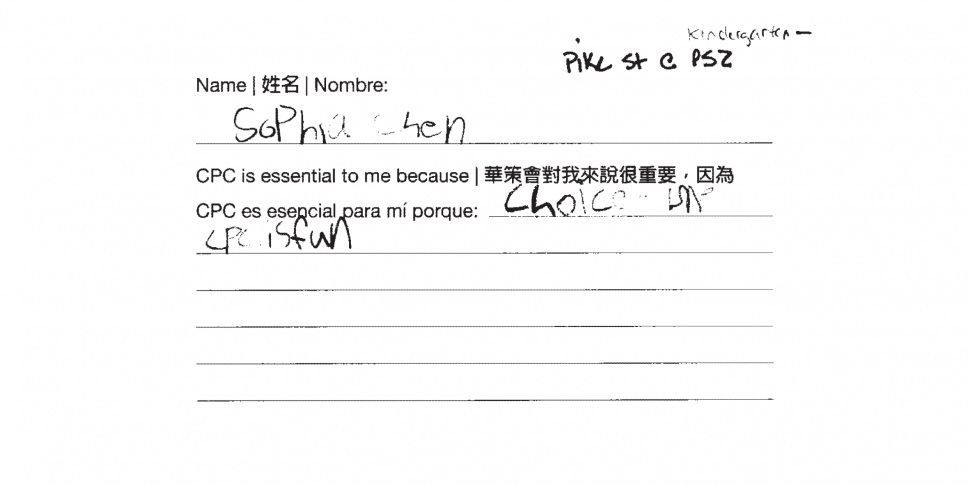 Kindergarten —
Pike St @ PS2
Name | 姓名 | Nombre:
SoPhia Chen
CPC is essential to me because | 華策會對我來說很重要，因為
CPC es esencial para mí porque: Choice
CPC is fun